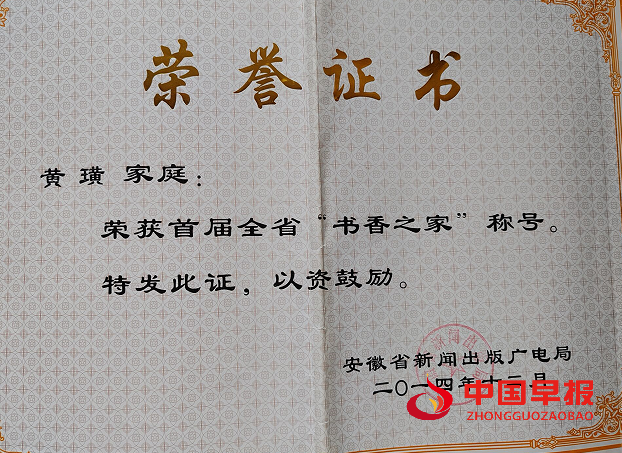 荣誉证书
黄璜 家庭：
荣获首届全省“书香之家”称号。
特发此证，以资鼓励。
安徽省新闻出版广电局
二〇一四年十二月
中国早报
ZHONGGUOZAOBAO